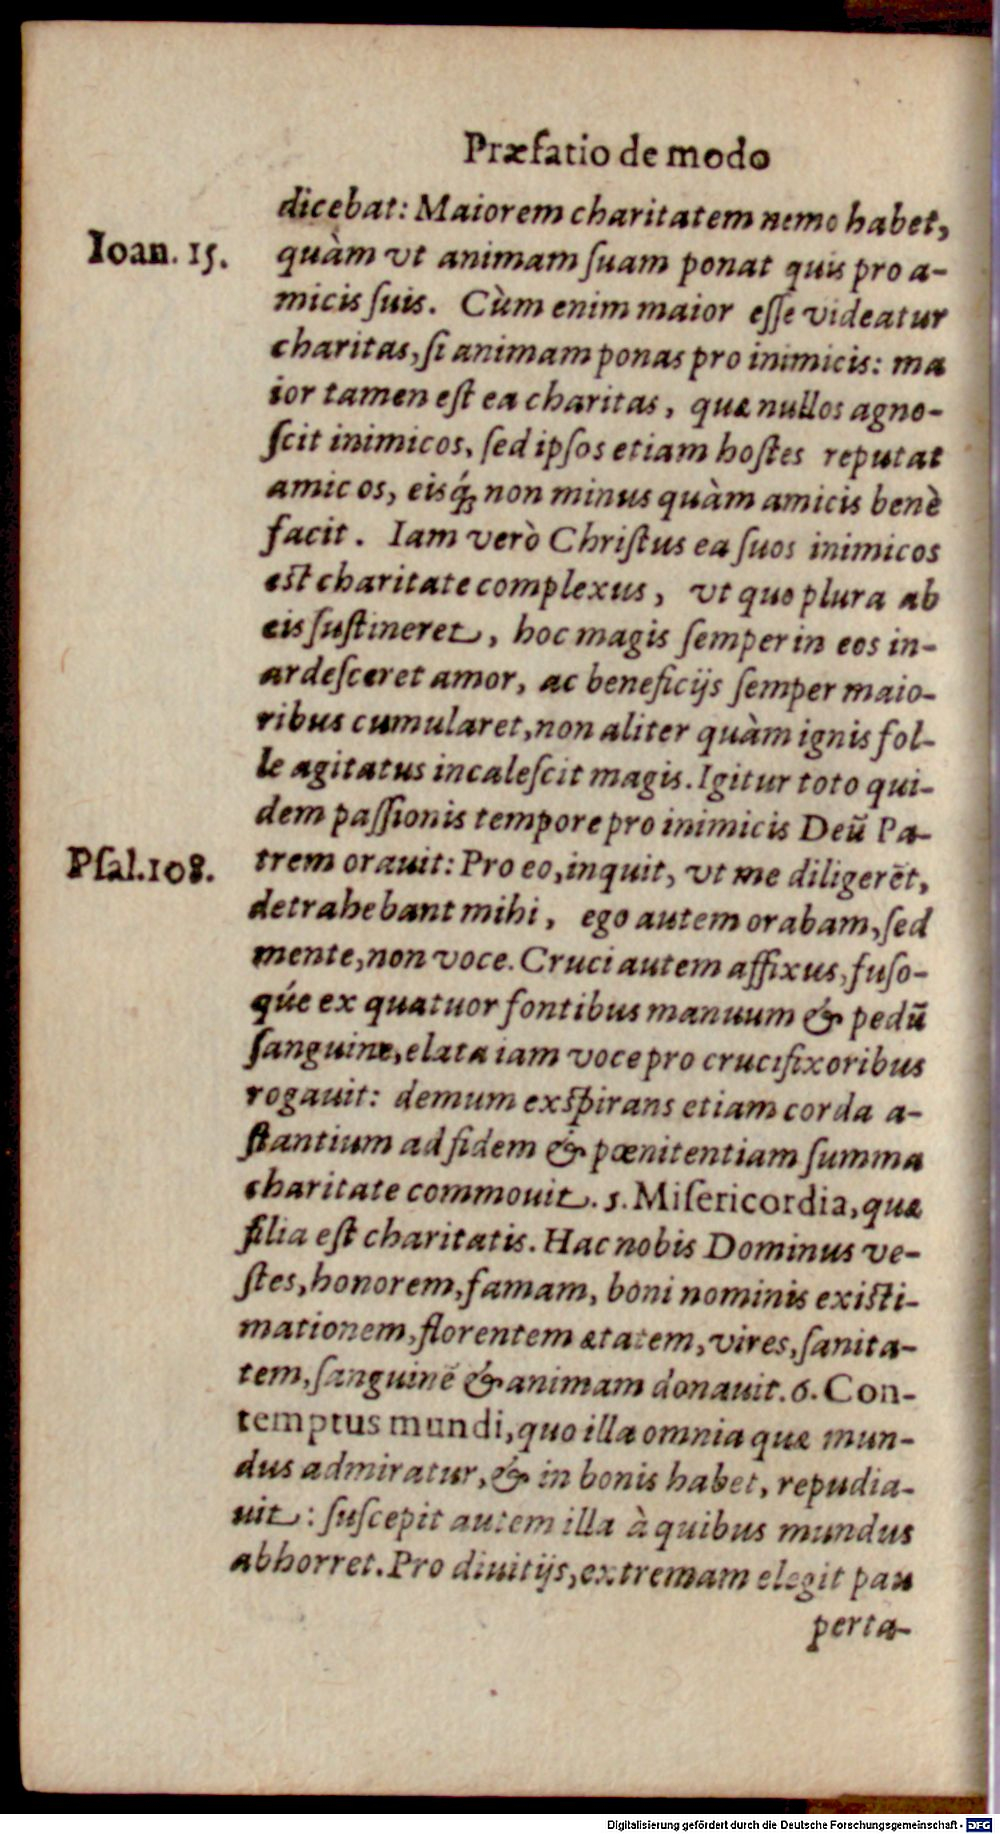 Præfatio de modo
dicebat: Maiorem charitatem nemo habet,
Ioan. 15.
quàm vt animam ſuam ponat quis pro a-
micis ſuis. Cùm enim maior eſſe videatur
charitas, ſi animam ponas pro inimicis: ma
ior tamen eſt ea charitas, quæ nullos agno-
ſcit inimicos, ſed ipſos etiam hoſtes reputat
amicos, eisq́; non minus quàm amicis benè
facit. Iam verò Chriſtus ea ſuos inimicos
eſt charitate complexus, vt quo plura ab
eis ſuſtineret, hoc magis ſemper in eos in-
ardeſceret amor, ac beneficijs ſemper maio-
ribus cumularet, non aliter quàm ignis fol-
le agitatus incaleſcit magis. Igitur toto qui-
dem paſſionis tempore pro inimicis Deū Pa-
Pſal. 108.
trem orauit: Pro eo, inquit, vt me diligerēt,
detrahebant mihi, ego autem orabam, ſed
mente, non voce. Cruci autem affixus, fuſo-
qúe ex quatuor fontibus manuum & pedū
ſanguine, elata iam voce pro crucifixoribus
rogauit: demum exſpirans etiam corda a-
ſtantium ad fidem & pœnitentiam ſumma
charitate commouit. 5. Miſericordia, quæ
filia eſt charitatis. Hac nobis Dominus ve-
ſtes, honorem, famam, boni nominis exiſti-
mationem, florentem ætatem, vires, ſanita-
tem, ſanguinē & animam donauit. 6. Con-
temptus mundi, quo illa omnia quæ mun-
dus admiratur, & in bonis habet, repudia-
uit: ſuſcepit autem illa à quibus mundus
abhorret. Pro diuitijs, extremam elegit pau
perta-
Digitalisierung gefördert durch die Deutsche Forschungsgemeinschaft - DFG